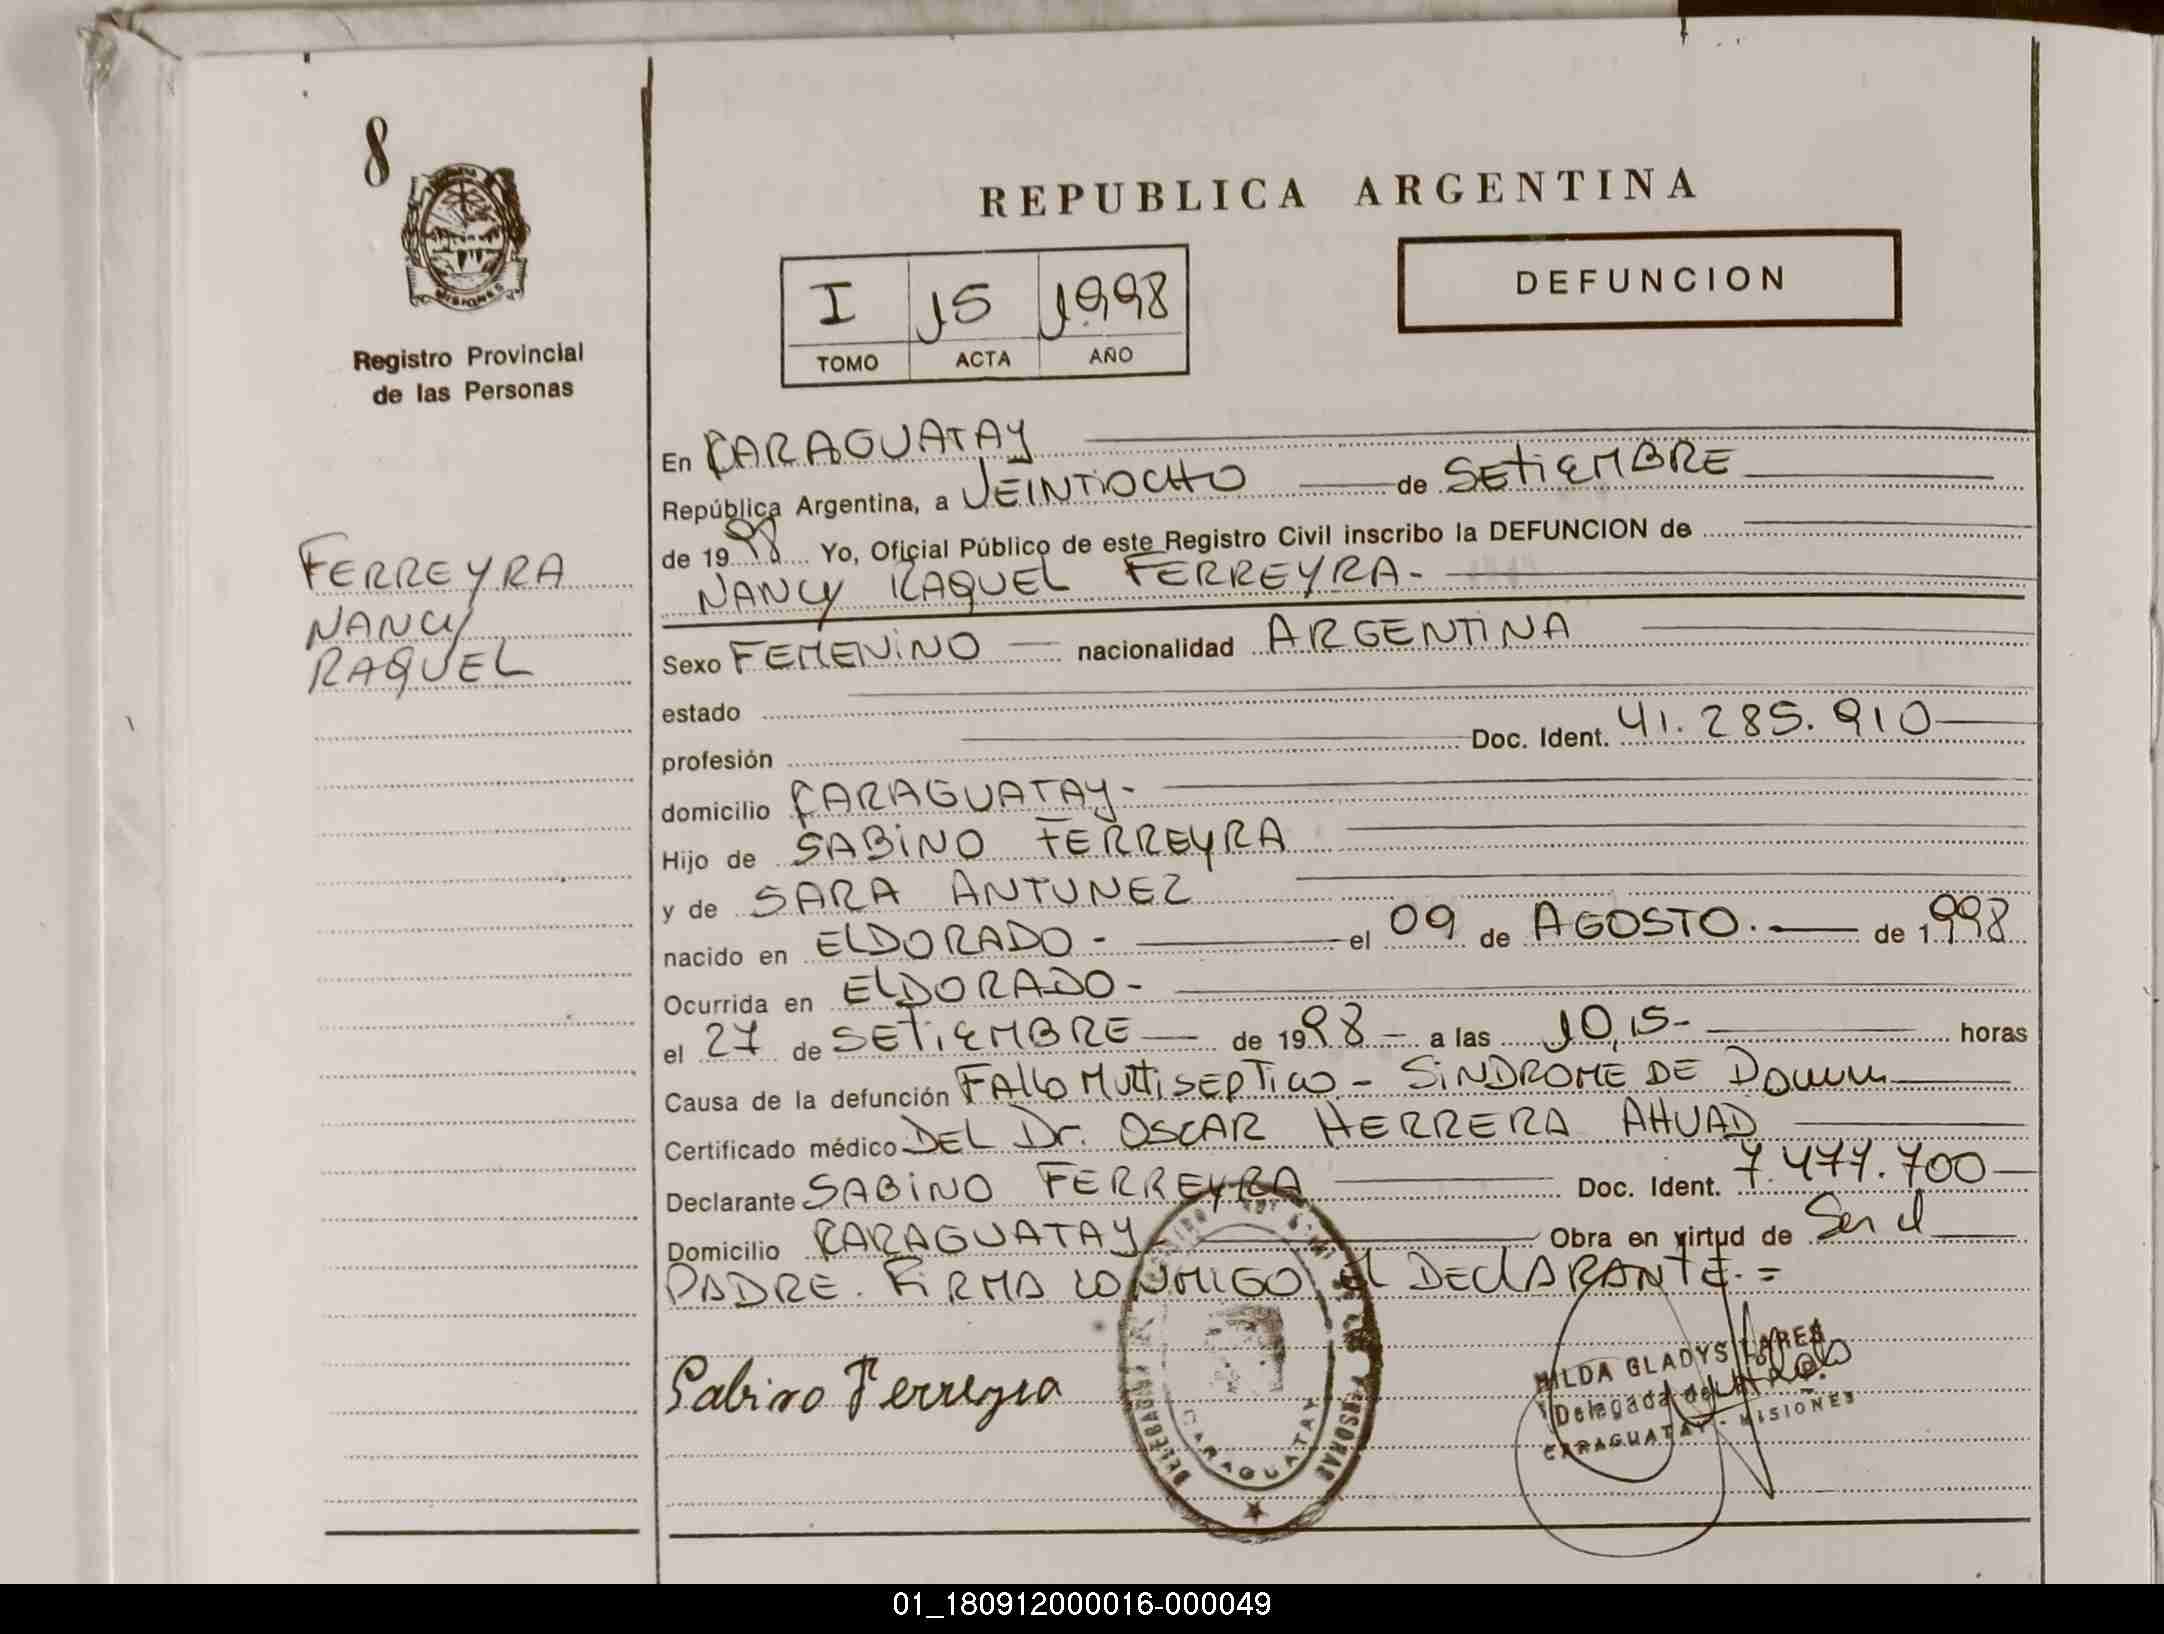 8
MISIONES
Registro Provincial
de las Personas
REPUBLICA ARGENTINA
I 15 1998
TOMO ACTA AÑO
DEFUNCION
FERREYRA
NANCY
RAQUEL
En CARAGUATAY
República Argentina, a VEINTIOCHO de SETIEMBRE
de 1998 Yo, Oficial Público de este Registro Civil inscribo la DEFUNCION de
NANCY RAQUEL FERREYRA.-
Sexo FEMENINO nacionalidad ARGENTINA
estado
profesión Doc. Ident. 41.285.910
domicilio CARAGUATAY-
Hijo de SABINO FERREYRA
y de SARA ANTUNEZ
nacido en ELDORADO - el 09 de AGOSTO. de 1998
Ocurrida en ELDORADO-
el 27 de SETIEMBRE de 1998 - a las 10,15- horas
Causa de la defunción FALLO MULTISEPTICO - SINDROME DE Douwn
Certificado médico DEL Dr. OSCAR HERRERA AHUAD
Declarante SABINO FERREYRA Doc. Ident. 7.477.700
Domicilio CARAGUATAY- Obra en virtud de Ser el
PADRE. FIRMA CONMIGO El DEClARANTE.=
Sabino Ferreyra
CARAGUATAY
HILDA GLADYS
Delegada del
CARAGUATAY - MISIONES
01_180912000016-000049